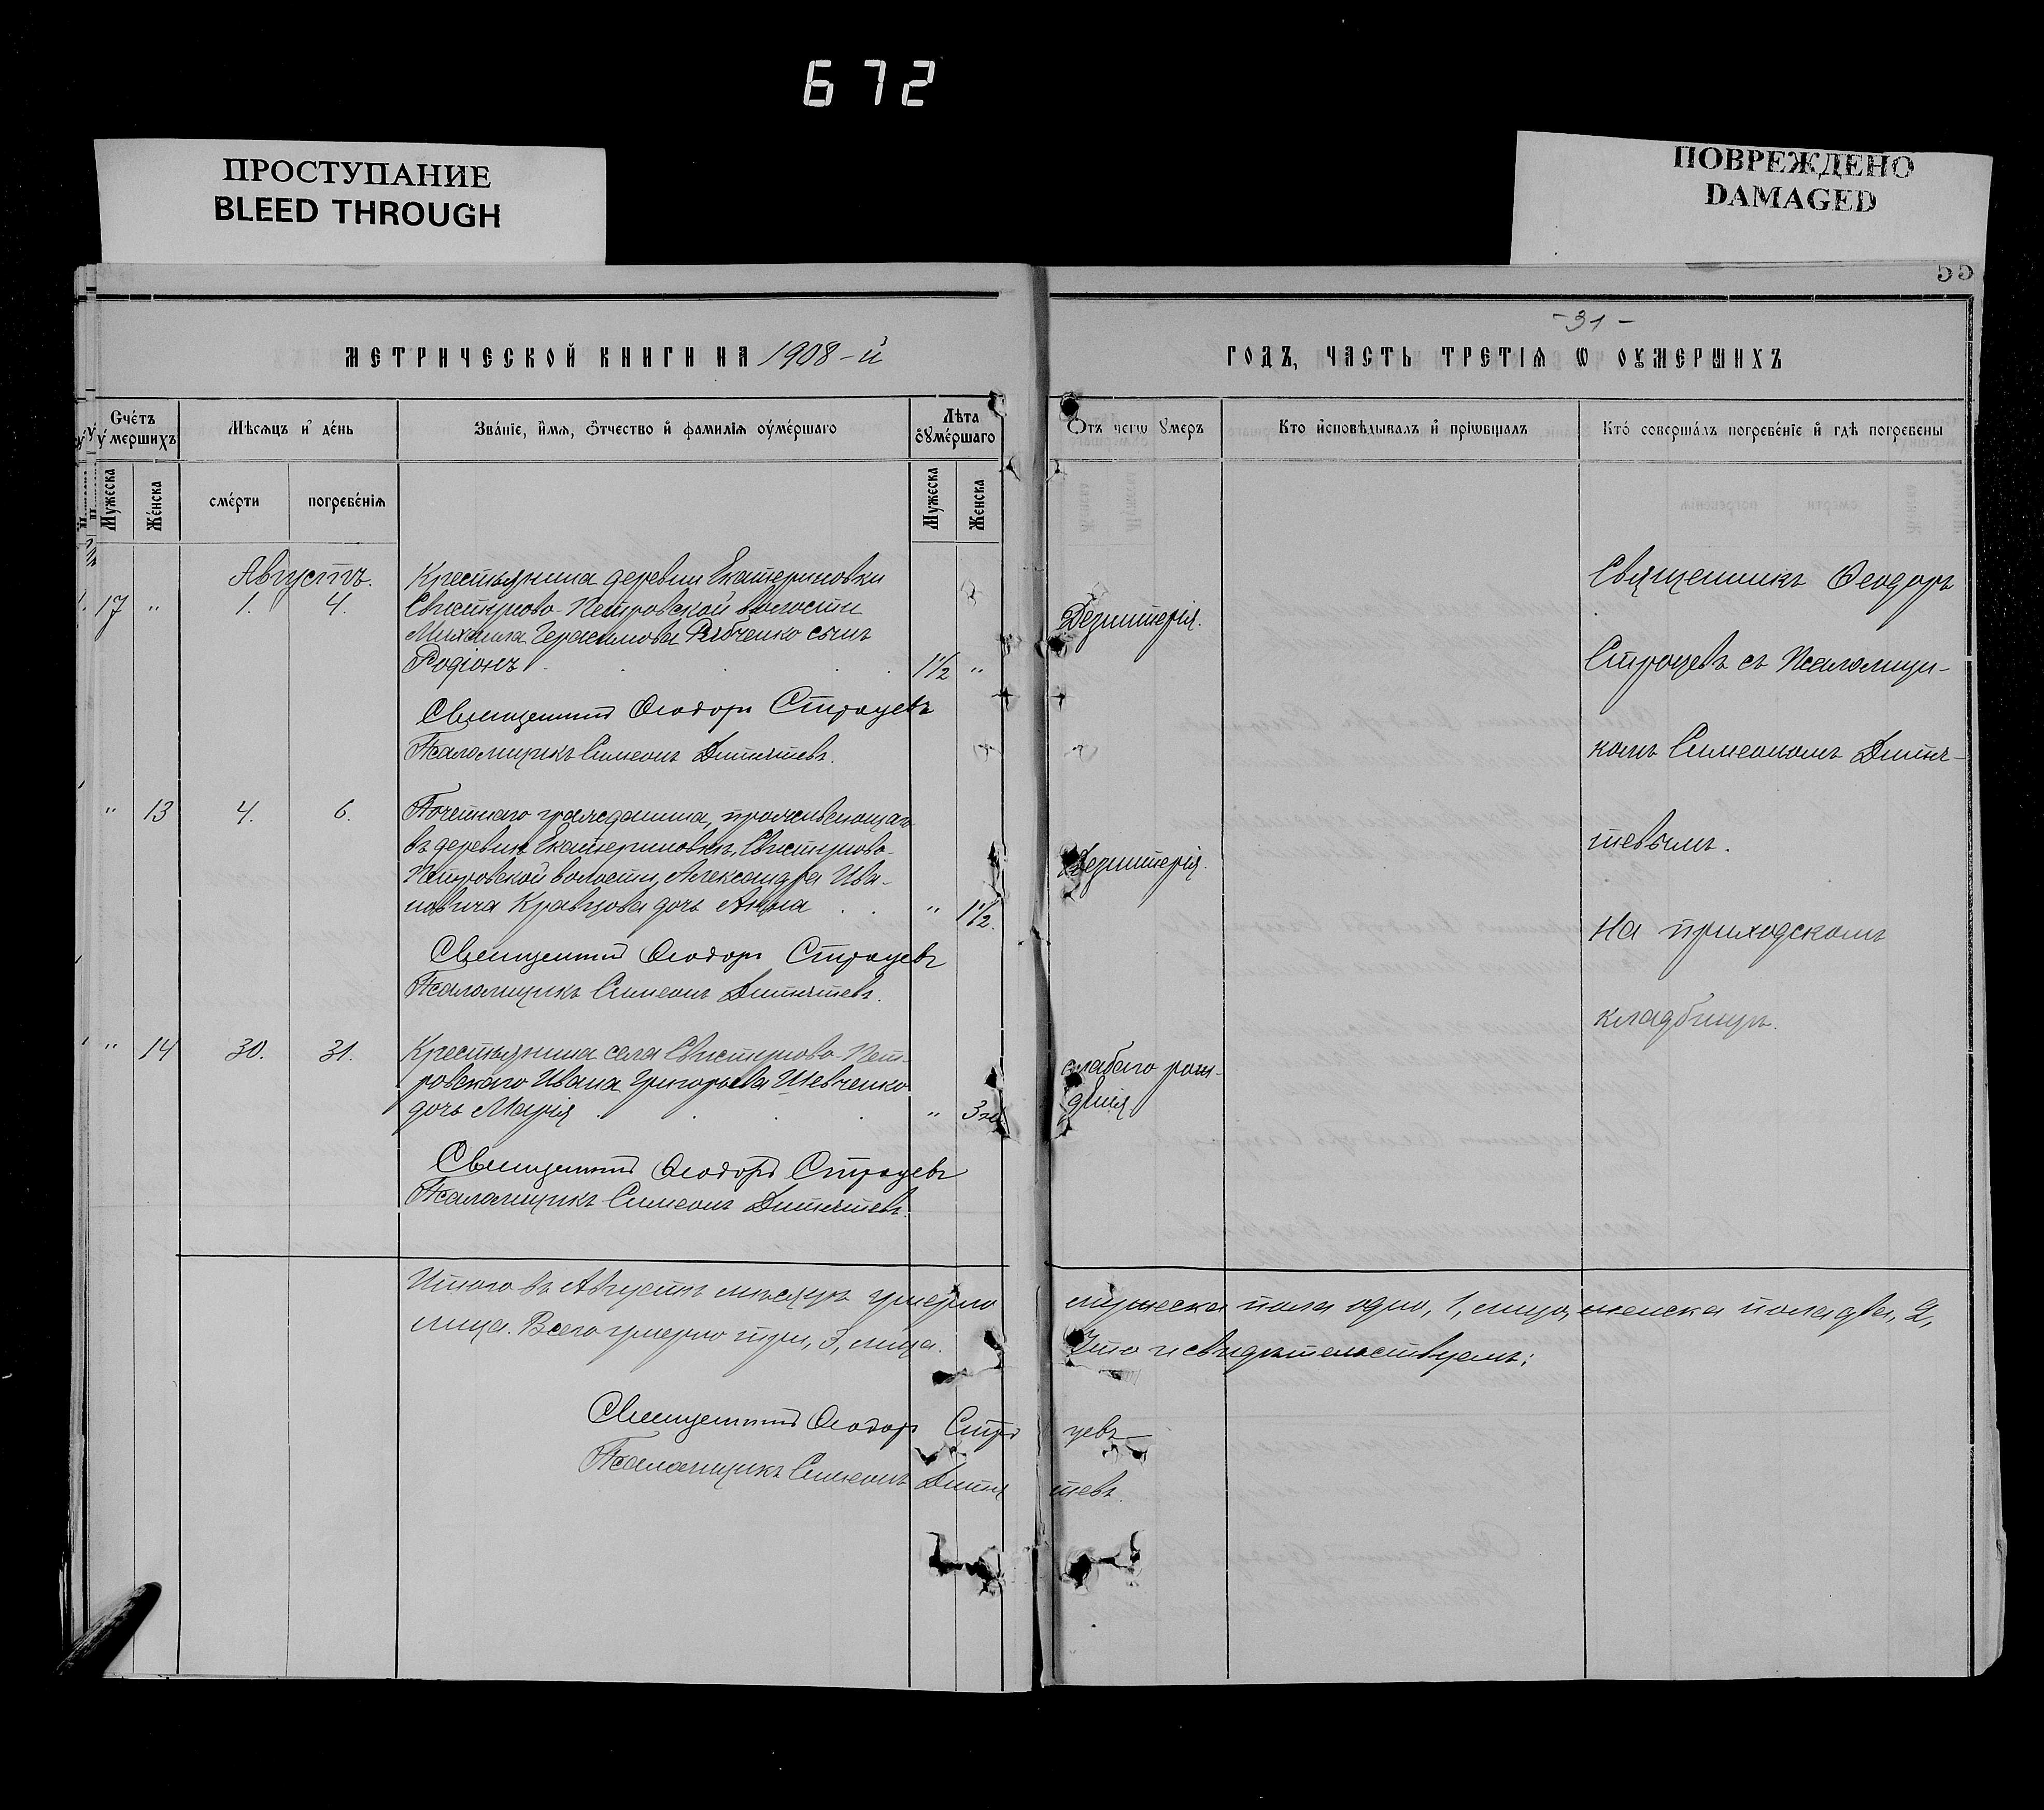 672
ПРОСТУПАНИЕ
BLEED THROUGH
ПОВРЕЖДЕНО
DAMAGED
55
-31-
МЕТРИЧЕСКОЙ КНИГИ НА 1908-й
ГОДЪ, ЧАСТЬ ТРЕТІѦ Ѡ ОУМЕРШИХЪ
Счетъ умершихъ
Мѣсѧцъ и день
Званіе, имѧ, отчество и фамиліѧ оумершаго
Лѣта оумершаго
Отъ чегѡ умеръ
Кто исповѣдывалъ и пріѡбщалъ
Кто совершалъ погребеніе и гдѣ погребены
Мужеска
Женска
смерти
погребеніѧ
Мужеска
Женска
Августъ.
17 " 1. 4.
Крестьянина деревни Екатериновки
Свистуново-Петровской волости
Михаила Герасимова Рябченко сынъ
Родіонъ . . . 1½ "
Дезинтерія.
Священникъ Ѳеодоръ Строцевъ
Псаломщикъ Симеонъ Дитятевъ.
" 13 4. 6.
Почетнаго гражданина, проживающаго
въ деревнѣ Екатериновкѣ, Свистуново-
Петровской волости, Александра Ива-
новича Кравцова дочь Анна . . " 1½.
Дезинтерія.
Священникъ Ѳеодоръ Строцевъ
Псаломщикъ Симеонъ Дитятевъ.
" 14 30. 31.
Крестьянина села Свистуново-Пет-
ровскаго Ивана Григорьева Шевченко
дочь Марія . . . " 3 н.
слабаго рож-
денія
Священникъ Ѳеодоръ Строцевъ
Псаломщикъ Симеонъ Дитятевъ.
Священникъ Ѳеодоръ
Строцевъ съ Псаломщи-
комъ Симеономъ Дитя-
тевымъ.
На приходскомъ
кладбищѣ.
Итого въ Августѣ мѣсяцѣ умерло мужеска пола одно, 1, лицо, женска пола два, 2,
лица. Всего умерло три, 3, лица. Что и свидѣтельствуемъ:
Священникъ Ѳеодоръ Строцевъ
Псаломщикъ Симеонъ Дитятевъ.